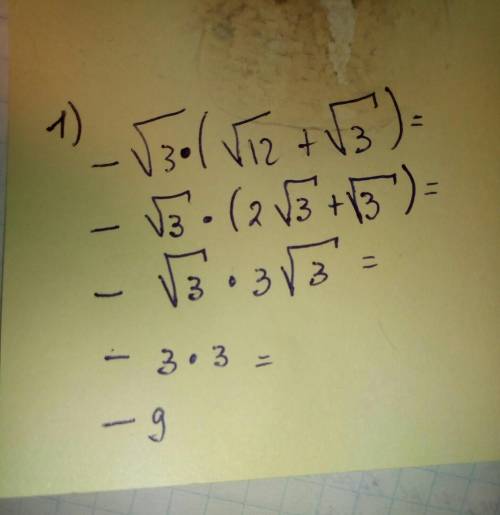 1)
- √3·(√12 + √3) =
- √3 · (2√3 + √3) =
- √3 · 3√3 =
- 3·3 =
- 9